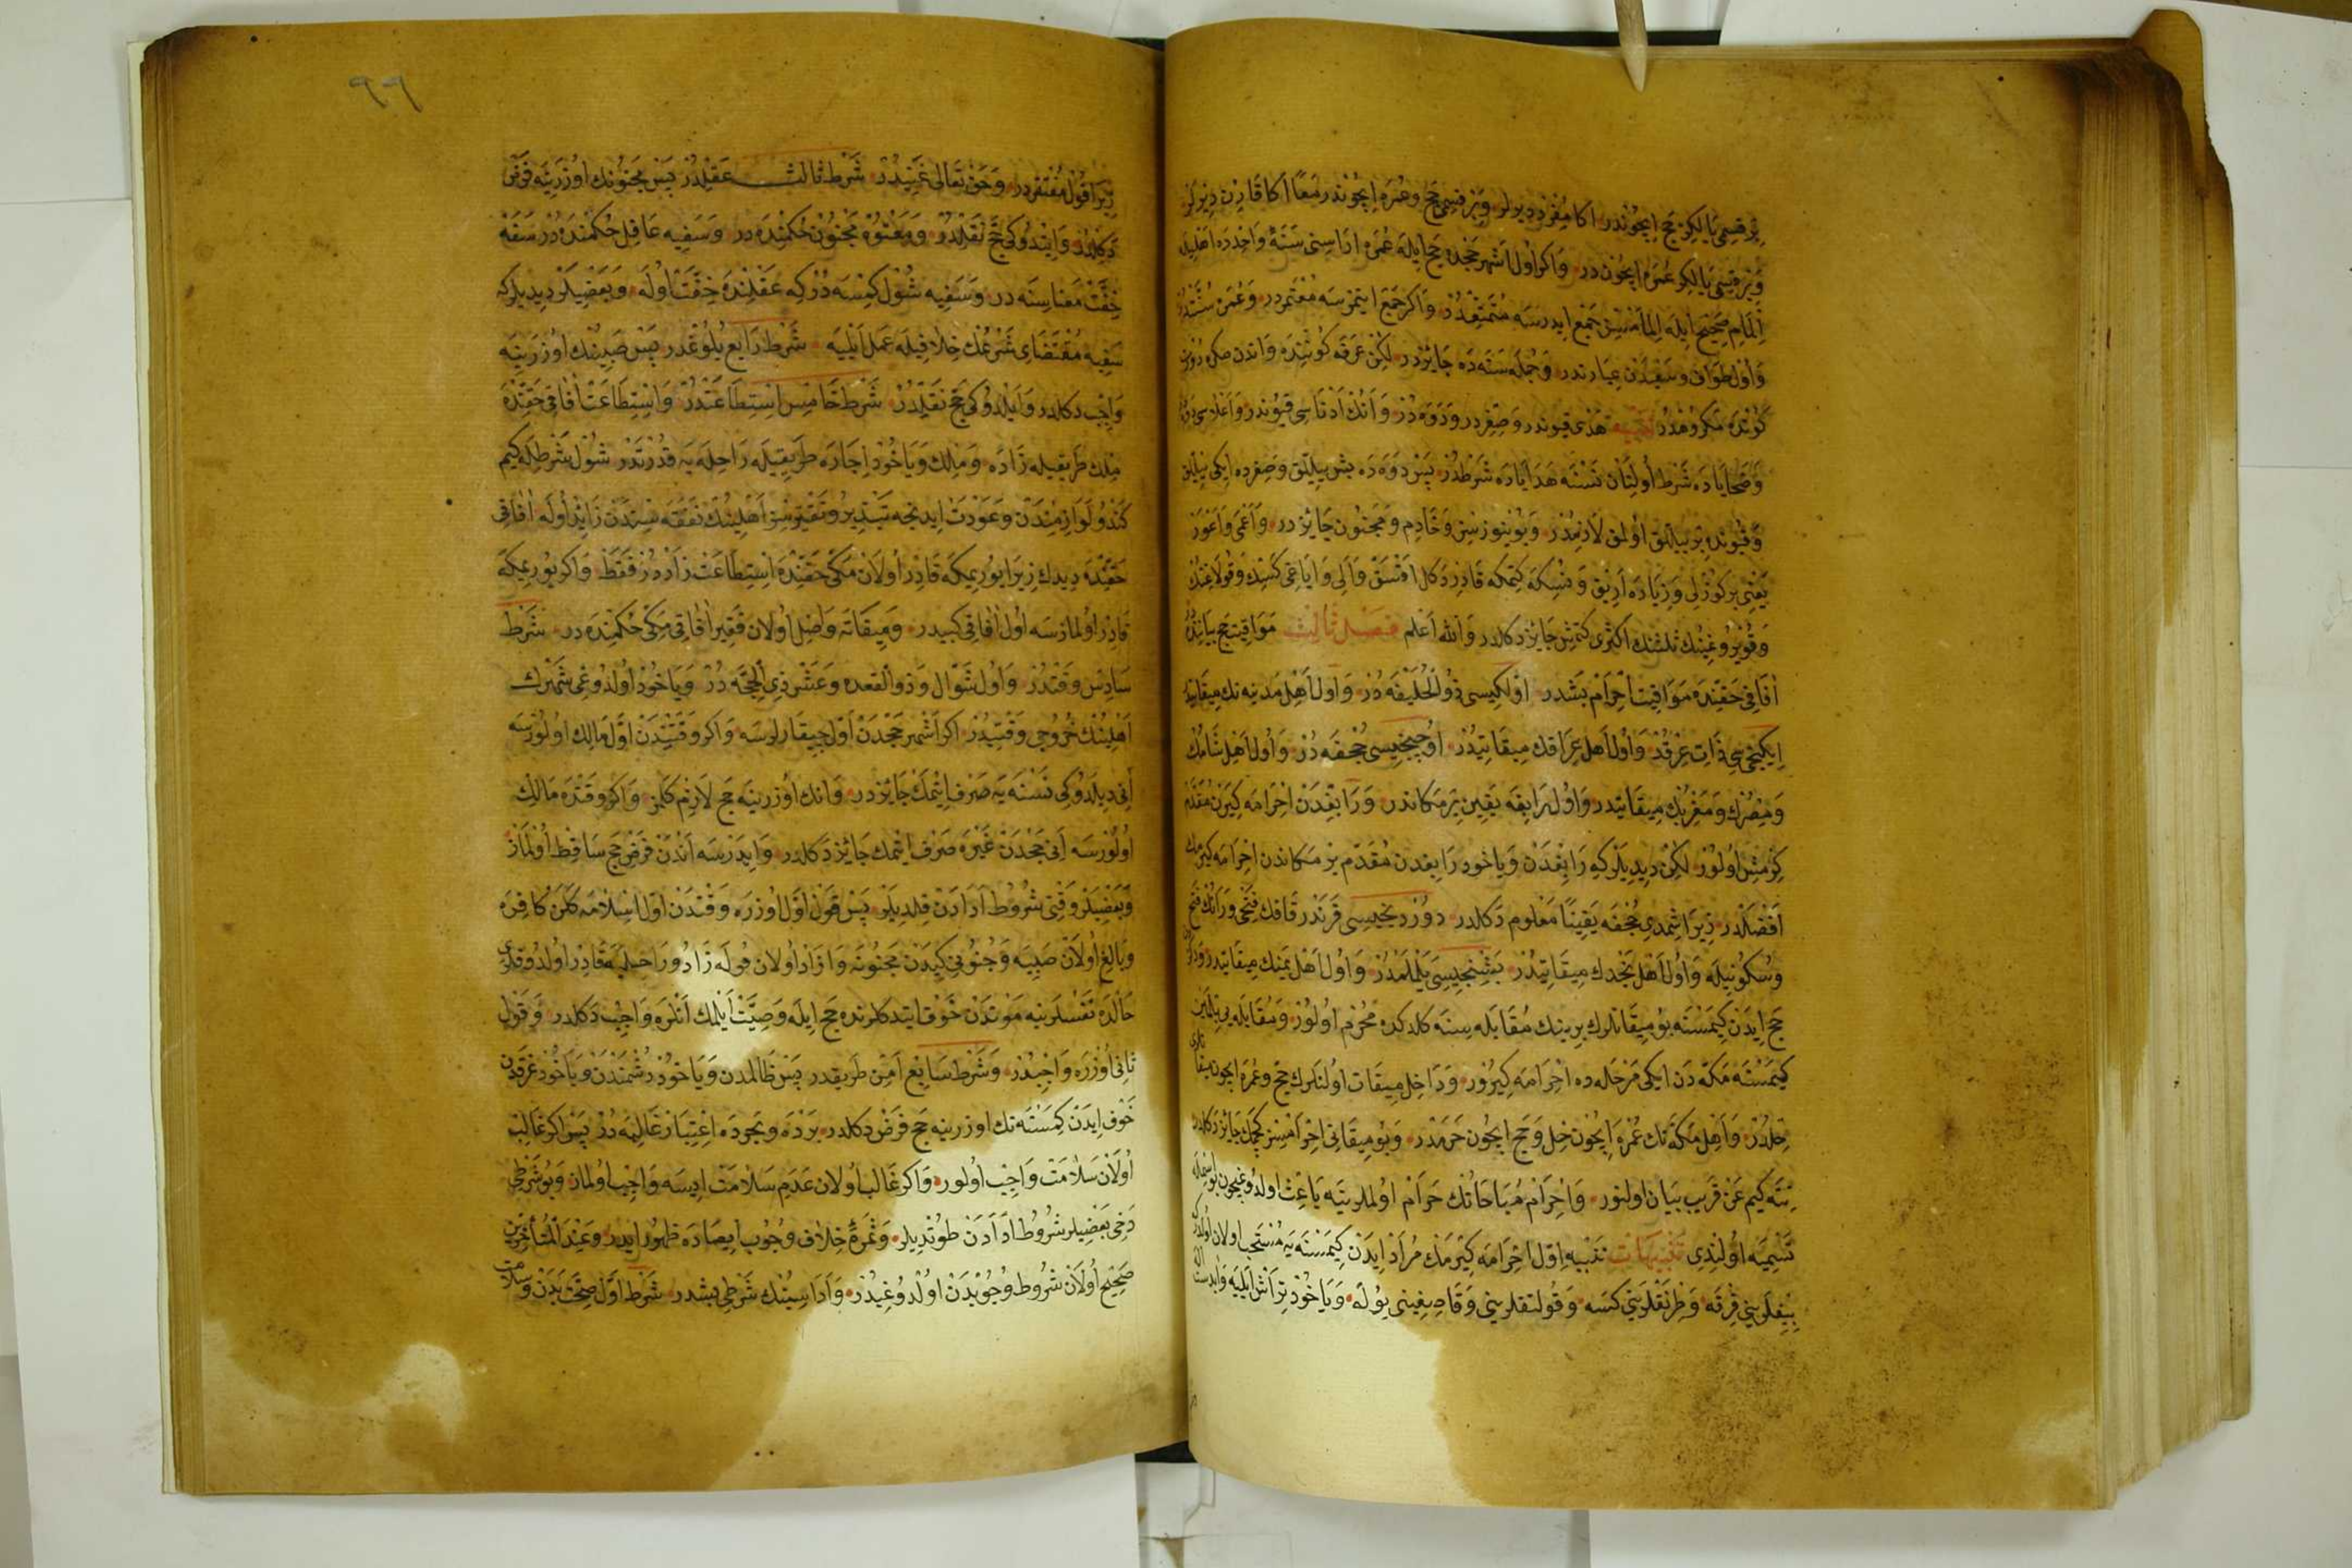 بر قسمى يالكز حج ايچوندر اكا مفرد ديرلر و بر قسمى حج و عمره ايچوندر معا اكا قارن ديرلر
و بر قسمى يالكز عمره ايچون در و اكر اول اشهر حجده حج ايله عمره اراسنى سنة واحدده اهليله
المام صحيح ايله المامنسز جمع ايدرسه متمتعدر و اكر جمع ايتمزسه معتمردر و عمره سنتدر
و اول طواف و سعيدن عبارتدر و جمله سنه ده جايزدر لكن عرفه كوننده و اندن صكره
كونده مكروهدر هدى قيوندر و صغردر و دوه در و انك ادناسى قيوندر و اعلاسى
و ضحاياده شرط اولنان نسنه هداياده شرطدر پس دوه ده بش ييللق و صغرده ايكى ييللق
و قيونده بر ييللق اولمق لازمدر و بوينوزسز و خادم و مجنون جايز در و اعمى و اعور
يعنى بر كوزلى و زياده اريق و منسكه كتمكه قادر دكل اقسق و الى و اياغى كسك و قولاغنك
و قويروغينك ثلثنك اكثرى كتمش جايز دكلدر و الله اعلم فصل ثالث مواقيت حج بيانندد
افاقى حقنده مواقيت احرام بشدر اولكيسى ذو الحليفه در و اول اهل مدينه نك ميقاتيدر
ايكنجى سى ذات عرقدر و اول اهل عراقك ميقاتيدر اوچنجيسى جحفه در و اول اهل شامك
و مصرك و مغربك ميقاتيدر و اول رابغه يقين بر مكاندر و رابغدن احرامه كيرن مقدم
كرمش اولور لكن ديديلر كه رابغدن و ياخود رابغدن مقدم بر مكاندن احرامه كيرمك
افضلدر زيرا شمدى جحفه يقينا معلوم دكلدر دوردنجيسى قرندر قافك فتحى و رانك
و سكونيله و اول اهل نجدك ميقاتيدر بشنجيسى يلملمدر و اول اهل يمنك ميقاتيدر
حج ايدن كيمسنه بو ميقاتلرك برينك مقابله سنه كلدكده محرم اولور و مقابله يى بيلمين
كيمسنه مكه دن ايكى مرحله ده احرامه كيرور و داخل ميقات اولنلرك حج و عمره ايچون
حلدر و اهل مكه نك عمره ايچون حل و حج ايچون حرمدر و بو ميقاتى احرامسز كچمك جايز دكلدر
نته كيم عن قريب بيان اولنور و احرام مباحاتك حرام اولملرينه باعث اولدوغيچون
تسميه اولندى تنبيهات تنبيه اول احرامه كيرمك مراد ايدن كيمسنه يه مستحب اولان
بيغلرينى قرقه و طرنقلرينى كسه و قولتقلرينى و قاصيغينى يوله و ياخود تراش ايليه
زيرا قول مفتقردر و حق تعالى غنيدر شرط ثالث عقلدر پس مجنونك اوزرينه فرض
دكلدر و ايتدوكى حج نفلدر و معتوه مجنون حكمنده در و سفيه عاقل حكمنده در سفه
خفت معناسنه در و سفيه شول كمسه در كه عقلنده خفت اوله و بعضيلر ديديلر كه
سفيه مقتضاى شرعك خلافيله عمل ايليه شرط رابع بلوغدر پس صبينك اوزرينه
واجب دكلدر و ايلدوكى حج نفلدر شرط خامس استطاعتدر و استطاعت افاقى حقنده
ملك طريقيله زاده و ملك و ياخود اجاره طريقيله راحله يه قدرتدر شول شرطله كيم
كندو لوازمندن و عودت ايدنجه تبذير و تقتيرسز اهلينك نفقه سندن زائد اوله افاقى
حقنده ديدك زيرا يوريمكه قادر اولان مكى حقنده استطاعت زاددر فقط و اكر يوريمكه
قادر اولمازسه اول افاقى كبيدر و ميقاته واصل اولان فقير افاقى مكى حكمنده در شرط
سادس وقتدر و اول شوال و ذو القعده و عشر ذى الحجه در و ياخود اولدوغى شهرك
اهلينك خروجى وقتيدر اكر اشهر حجدن اول چيقارلرسه و اكر وقتندن اول مالك اولورسه
انى ديلدوكى نسنه يه صرف ايتمك جائزدر و انك اوزرينه حج لازم كلمز و اكر وقتده مالك
اولورسه انى حجدن غيره صرف ايتمك جائز دكلدر و ايدرسه اندن فرض حج ساقط اولماز
و بعضيلر وقتى شروط ادادن قلديلر پس قول اول اوزره وقتدن اول اسلامه كلن كافره
و بالغ اولان صبيه و جنونى كيدن مجنونه و ازاد اولان قوله زاد و راحله يه قادر اولدوقلرى
حالده نفسلرينه موتدن خوف ايتدكلرنده حج ايله وصيت ايلمك انلره واجب دكلدر و قول
ثانى اوزره واجبدر و شرط سابع امن طريقدر پس ظالمدن و ياخود دشمندن و ياخود غرقدن
خوف ايدن كمسنه نك اوزرينه حج فرض دكلدر برده و بحرده اعتبار غالبه در پس اكر غالب
اولان سلامت واجب اولور و اكر غالب اولان عدم سلامت ايسه واجب اولماز و بو شرطى
دخى بعضيلر شروط ادادن طوتديلر و ثمره خلاف وجوب ايصاده ظهور ايدر و عند المتأخرين
صحيح اولان شروط وجوبدن اولدوغيدر و اداسينك شرطى بشدر شرط اول صحت بدن و سلامت